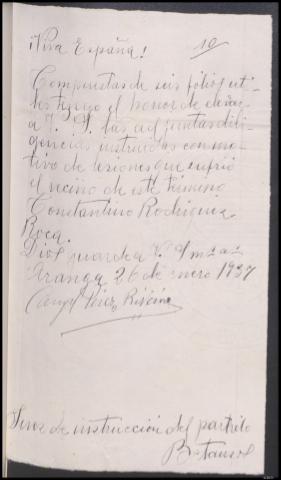 ¡Viva España!
10
Compuestas de seis folios uti-
les tengo el honor de elevar
a V. S. las adjuntas dili-
gencias instruidas con mo-
tivo de lesiones que sufrió
el vecino de este término
Constantino Rodriguez
Roca.
Dios guarde a V. S. m.s a.s
Aranga 26 de enero 1937
Angel Pérez
Juez de instrucción del partido
Betanzos